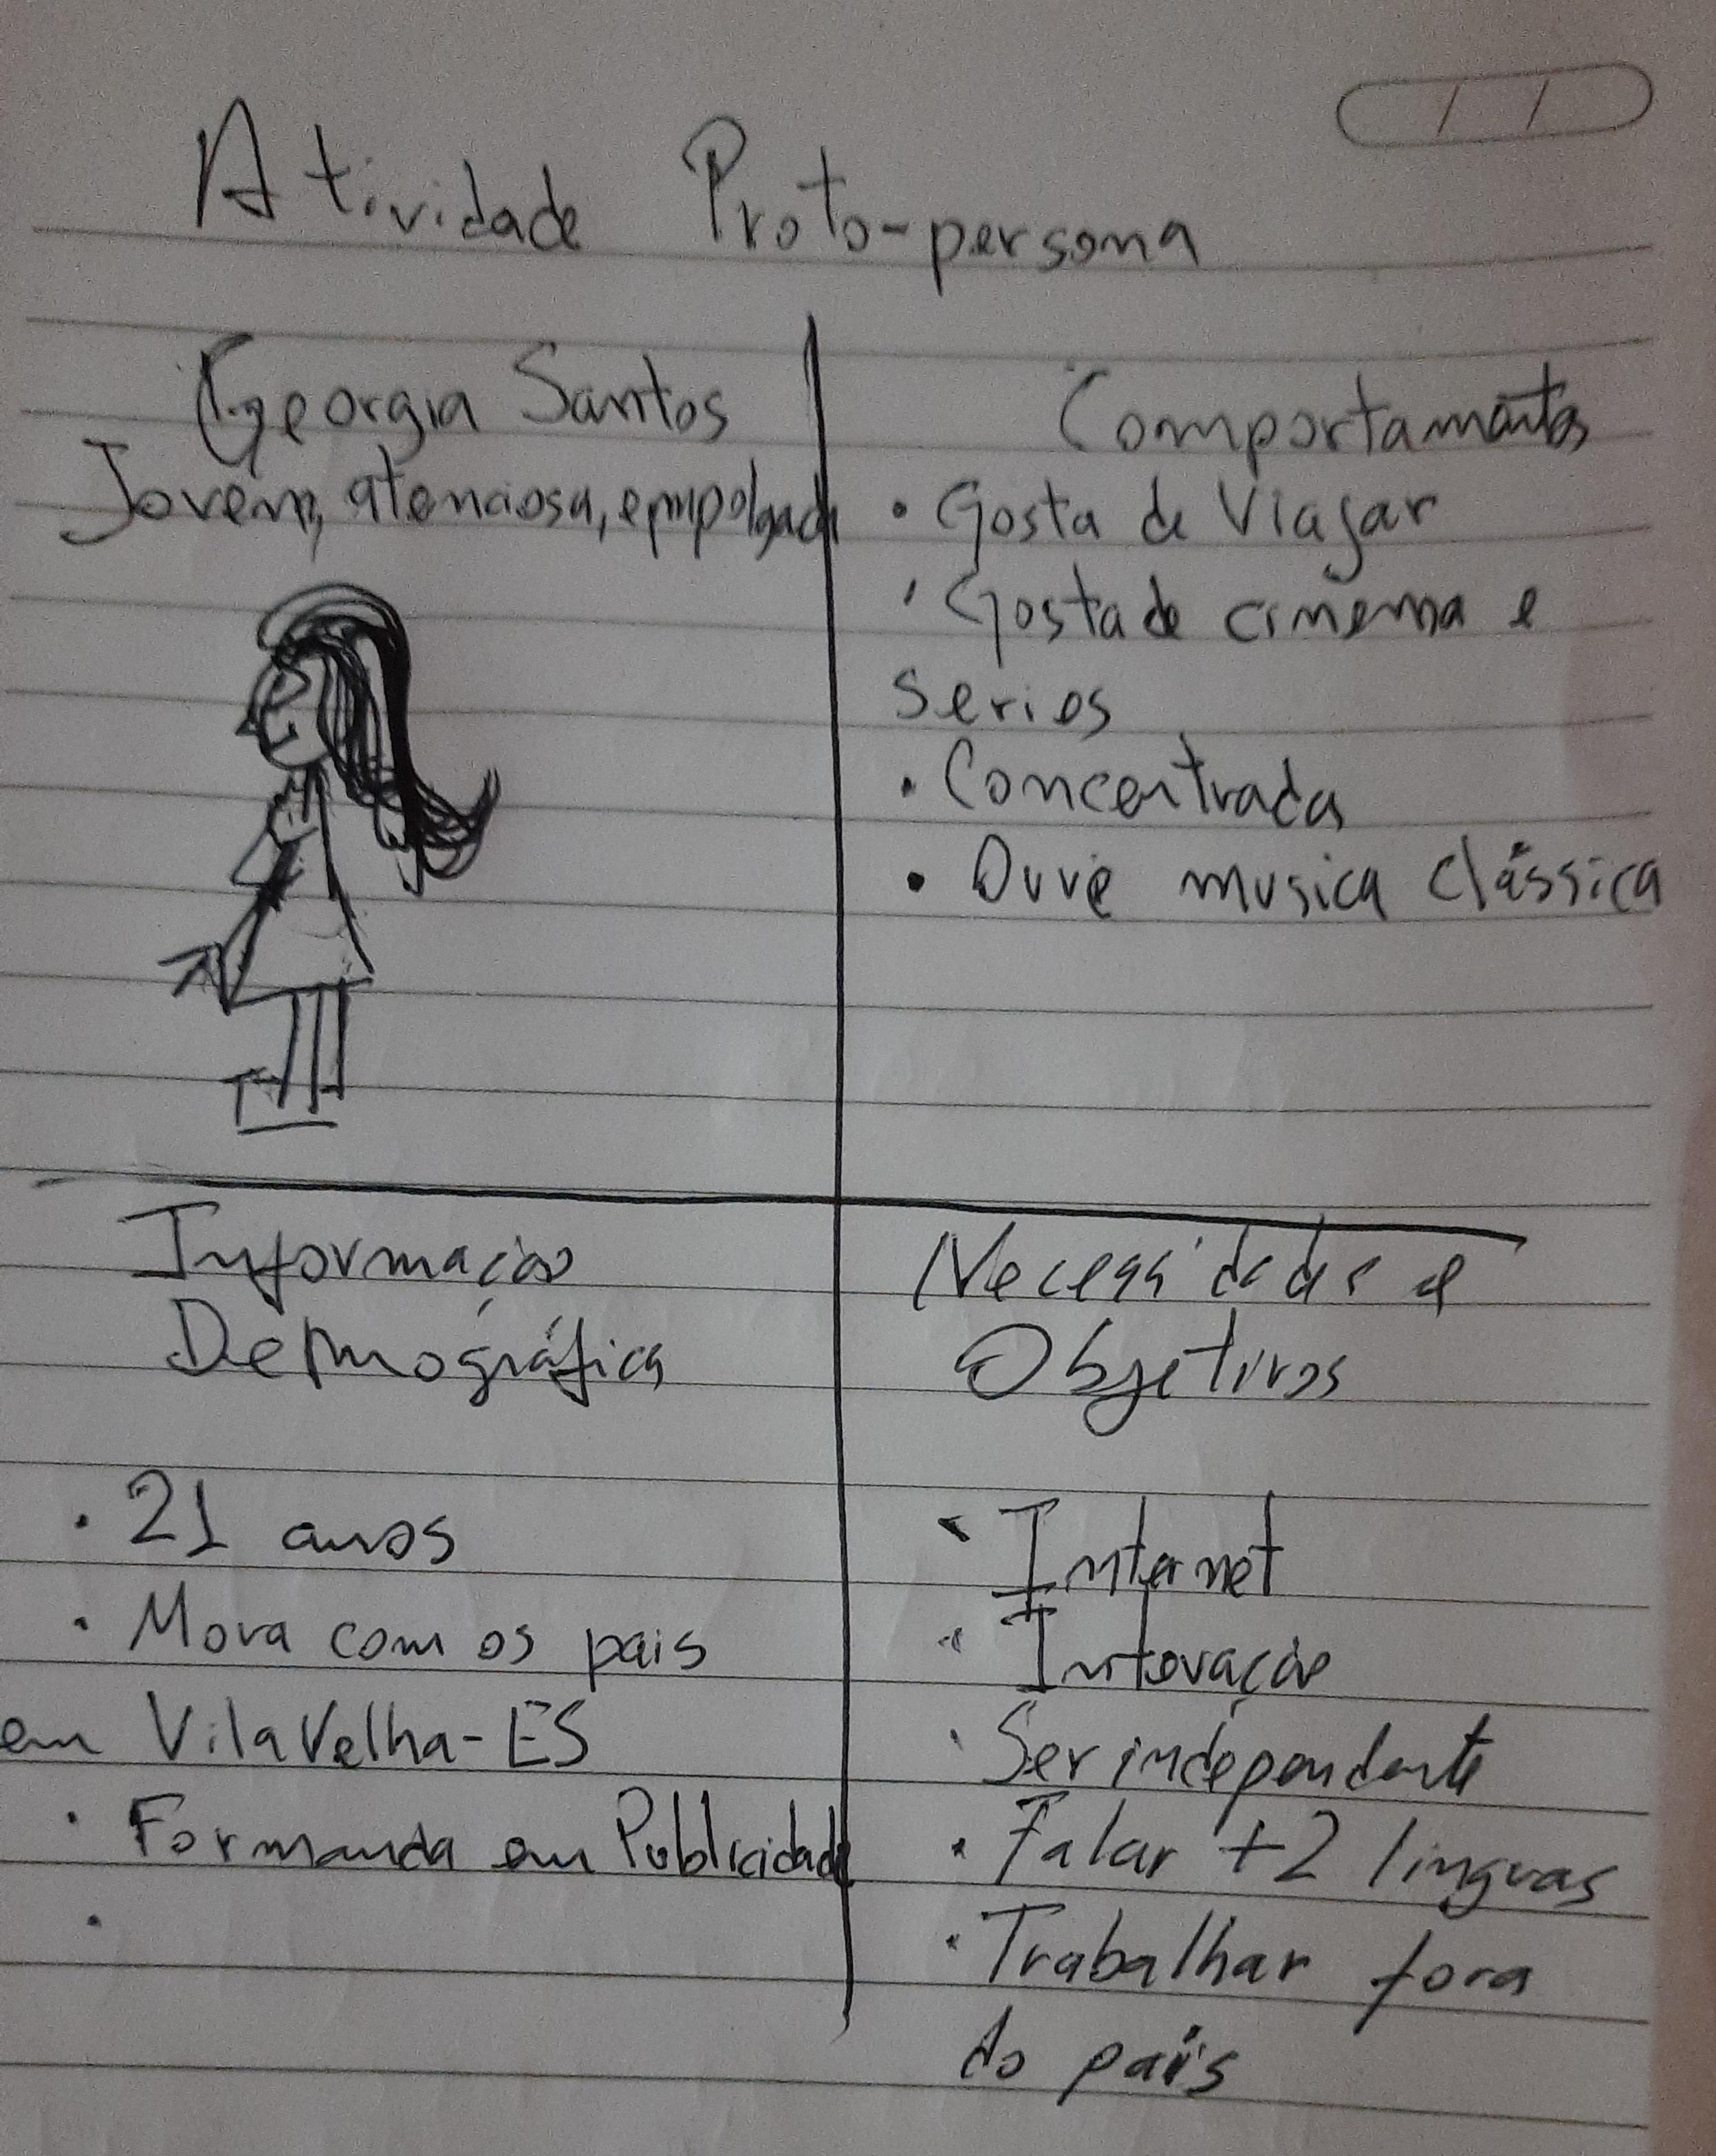 Atividade Proto-persona
Georgia Santos
Jovem, atenciosa, empolgada
Comportamentos
• Gosta de Viajar
• Gosta de cinema e
series
• Concentrada
• Ouve musica clássica
Informação
Demográfica
• 21 anos
• Mora com os pais
em Vila Velha - ES
• Formanda em Publicidade
•
Necessidades e
Objetivos
• Internet
•
• Ser independente
• Falar +2 linguas
• Trabalhar fora
do país